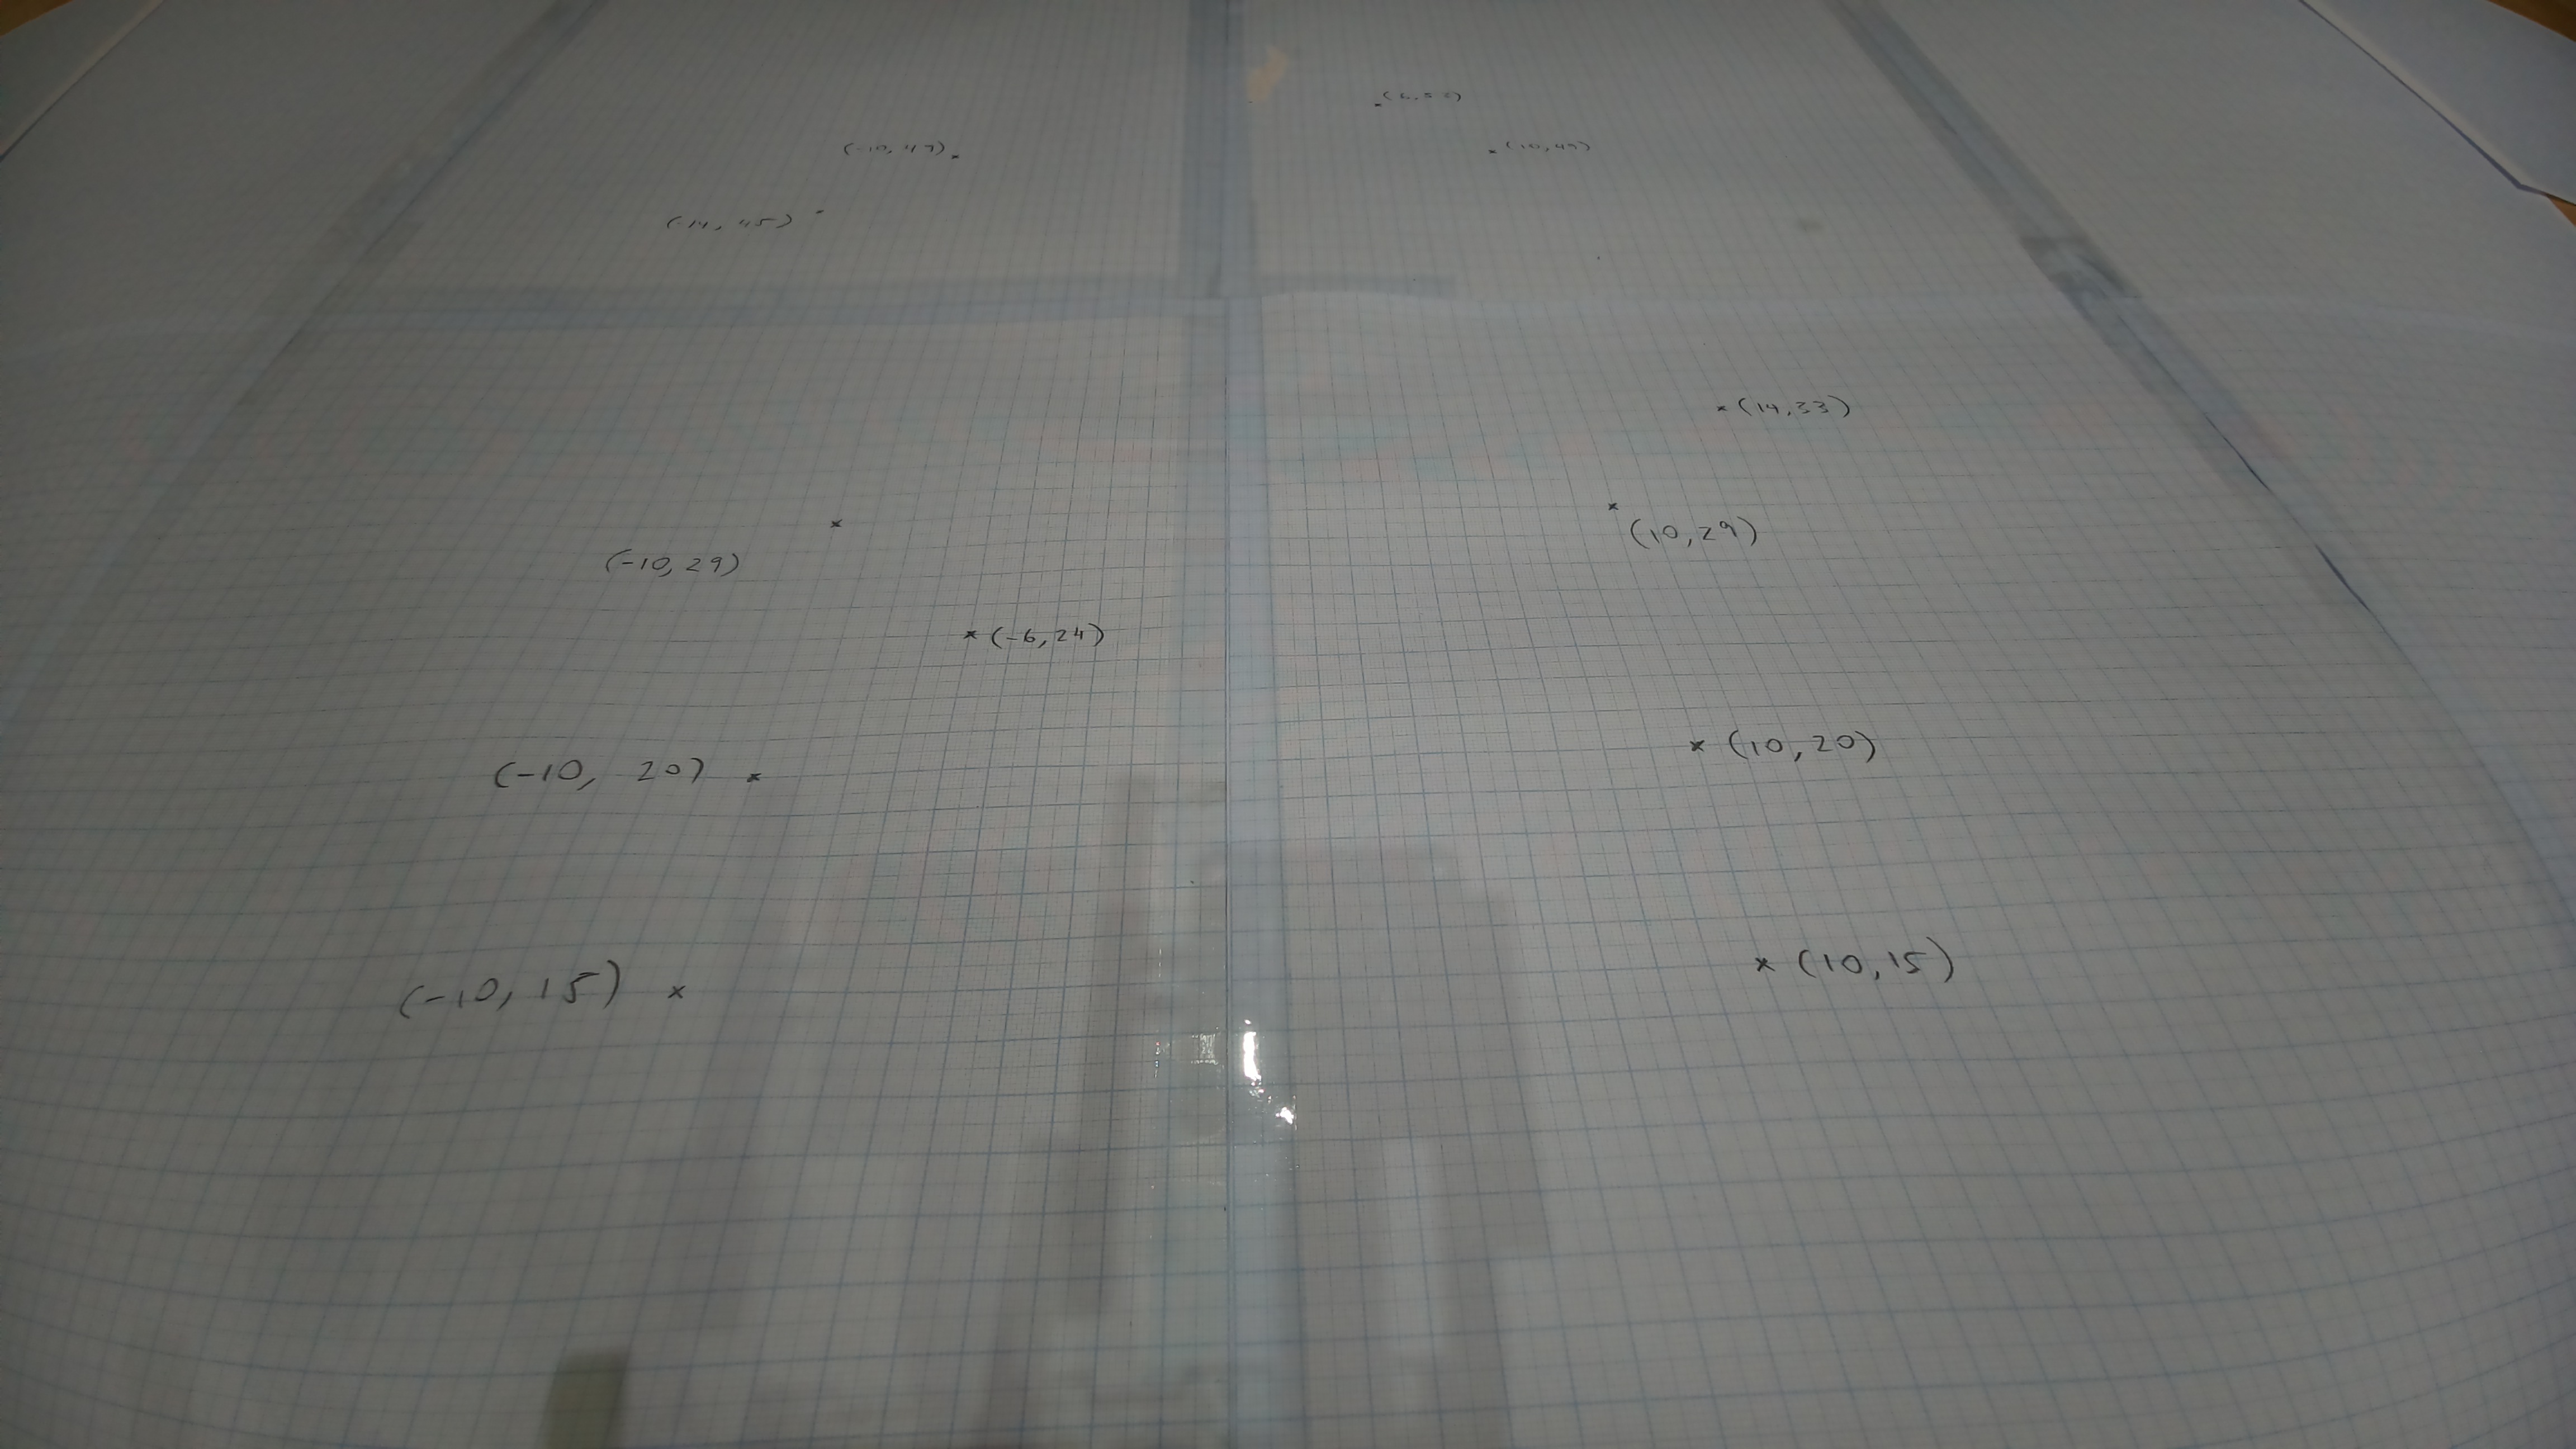 (-10, 47)
(10,49)
(-14, 45)
(14,33)
(10,29)
(-10,29)
(-6,24)
(10,20)
(-10, 20)
(10,15)
(-10, 15)